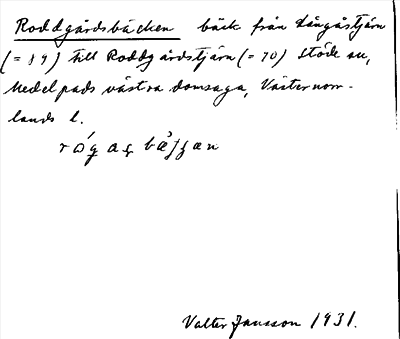 Roddgårdsbäcken bäck från Långåstjärn
(= 89) till Roddgårdstjärn (= 70) Stöde sn,
Medelpads västra domsaga, Västernorr-
lands l.
Valter Jansson 1931.